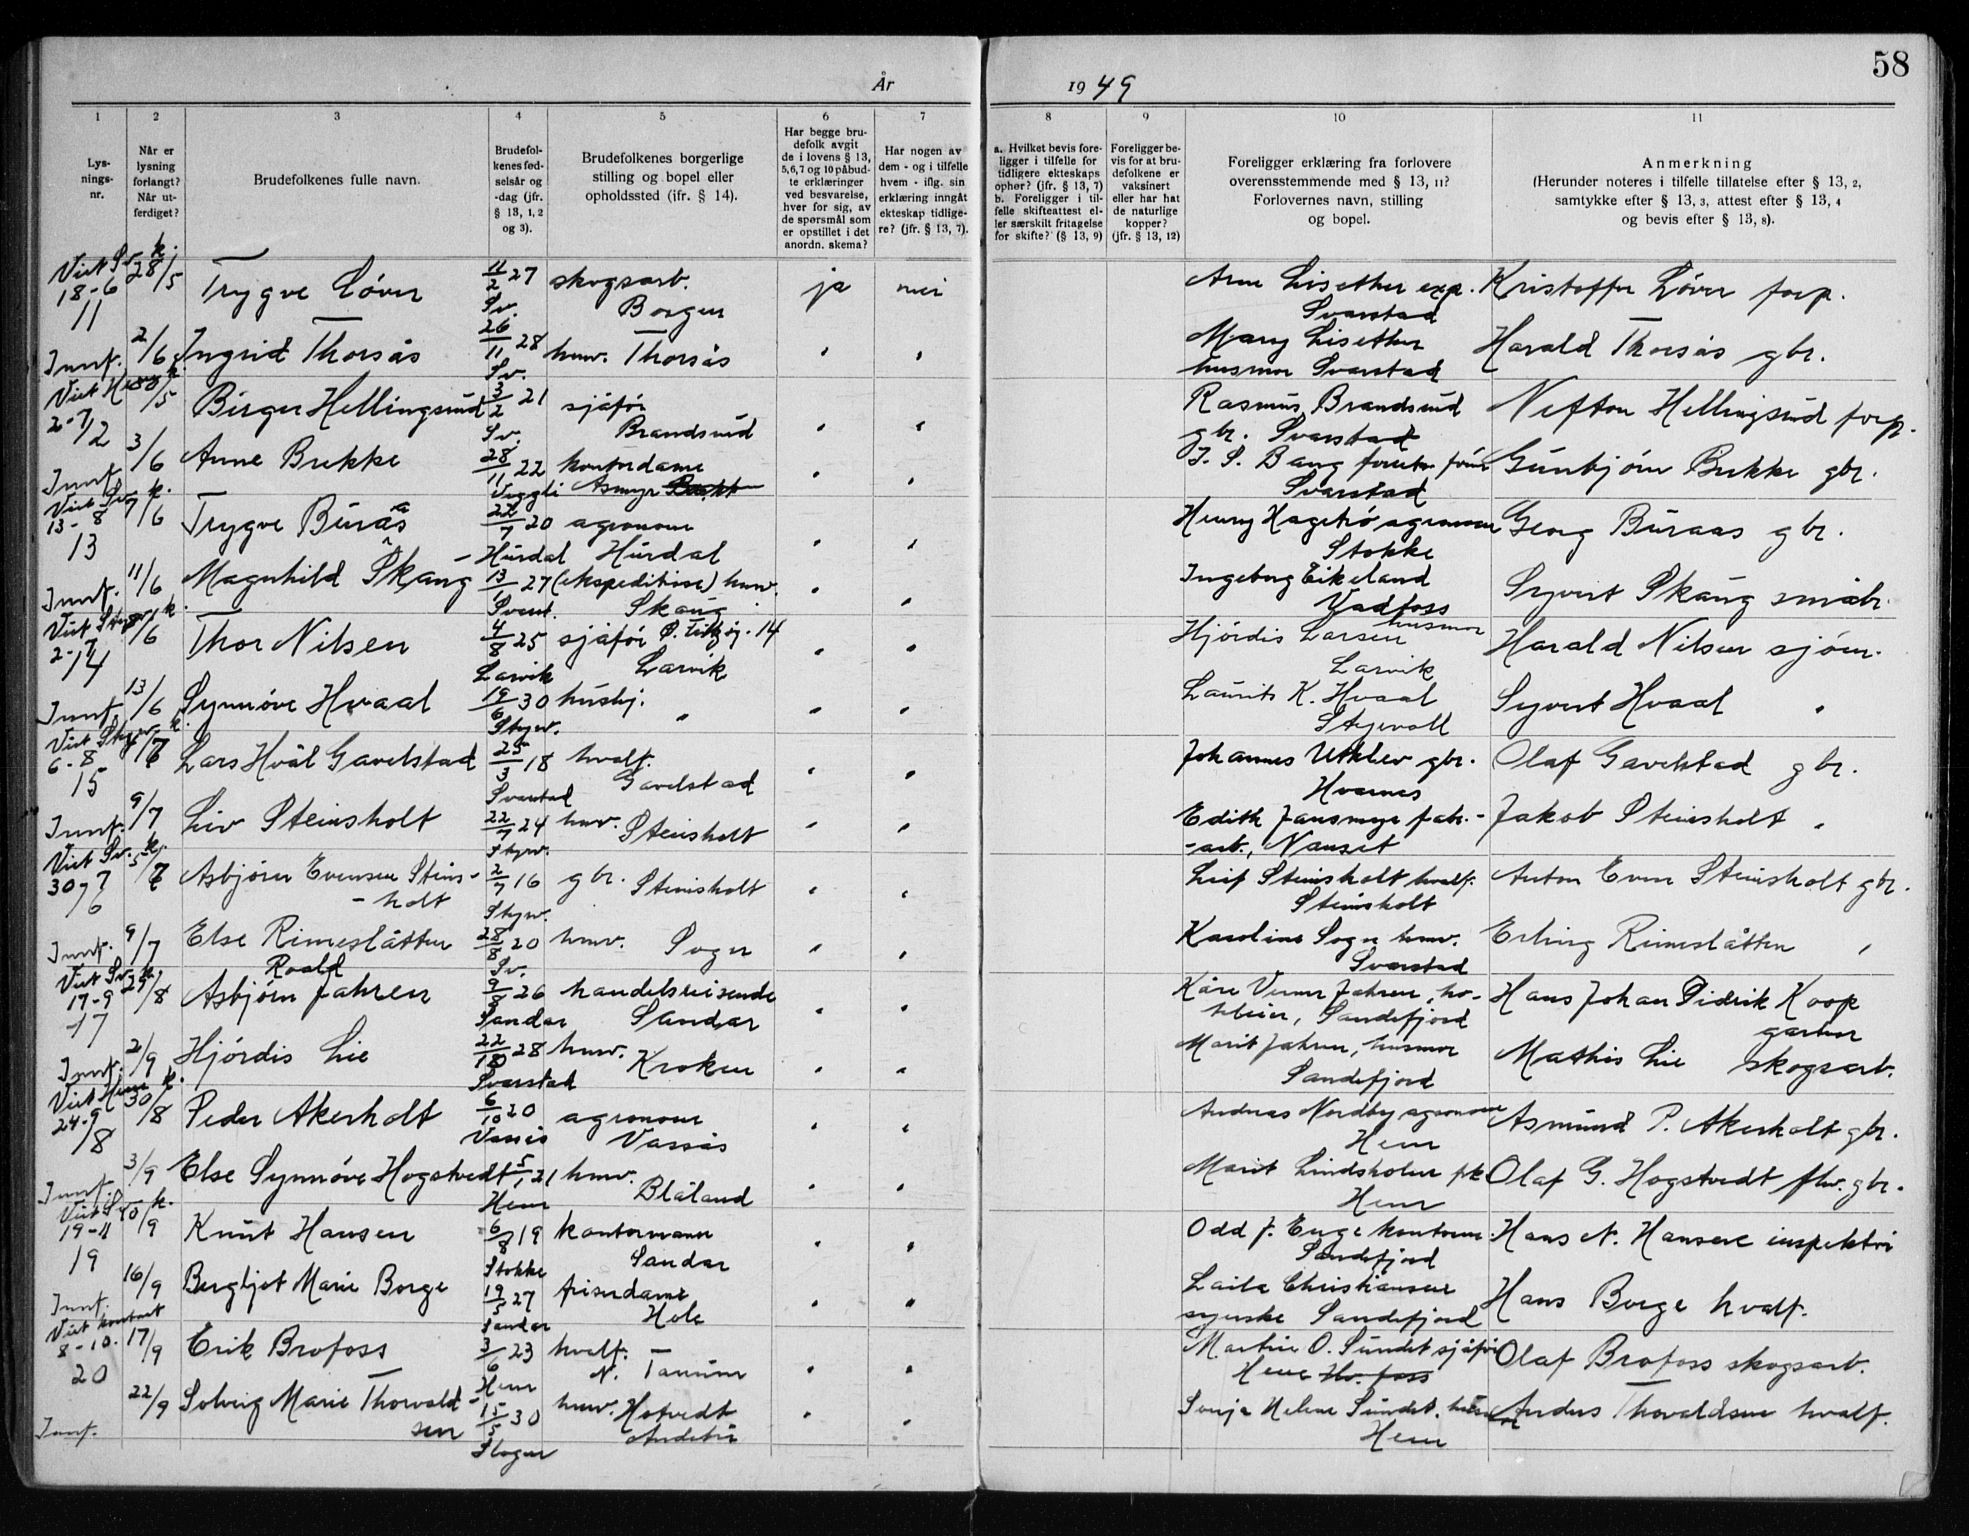 58
År 1949
1 2 3 4 5 6 7 8 9 10 11
Lys-
nings-
nr.
Når er
lysning
forlangt?
Når ut-
ferdiget?
Brudefolkenes fulle navn.
Brudefol-
kenes fød-
selsår og
-dag (jfr.
§ 13, 1, 2
og 3).
Brudefolkenes borgerlige
stilling og bopel eller
opholdssted (ifr. § 14).
Har begge bru-
defolk avgit
de i lovens § 13,
5,6,7 og 10 påbud-
te erklæringer
ved besvarelse,
hver for sig, av
de spørsmål som
er opstillet i det
anordn. skema?
Har nogen av
dem - og i tilfelle
hvem - iflg. sin
erklæring inngåt
ekteskap tidlige-
re? (jfr. § 13, 7).
a. Hvilket bevis fore-
ligger i tilfelle for
tidligere ekteskaps
ophør? (jfr. § 13, 7)
b. Foreligger i til-
felle skifteattest el-
ler særskilt fritagelse
for skifte? (§ 13, 9)
Foreligger be-
vis for at bru-
defolkene er
vaksinert
eller har hat
de naturlige
kopper?
(jfr. § 13, 12)
Foreligger erklæring fra forlovere
overensstemmende med § 13, 11?
Forlovernes navn, stilling
og bopel.
Anmerkning
(Herunder noteres i tilfelle tillatelse efter § 13, 2,
samtykke efter § 13, 3, attest efter § 13, 4
og bevis efter § 13, 8).
Viet Sv. k.
18-6 28/5 Trygve Løver 11/2 27 skogsarb. ja nei Arne Lisether exp. Kristoffer Løver forp.
11 Sv. Borgen Svarstad
Innf. 2/6 Ingrid Thorsås 26/11 28 hmv. Thorsås " " Mary Lisether Harald Thorsås gbr.
Sv. husmor Svarstad
Viet Hem k.
2-7 30/5 Birger Hellingsrud 3/2 21 sjåfør " " Rasmus Brandsrud Nefton Hellingsrud forp.
12 Sv. Brandsrud gbr. Svarstad
Innf. 3/6 Anne Brekke 28/11 22 kontordame " " Bang Gunbjørn Brekke gbr.
Veggli Svarstad
Viet Sv. k.
13-8 7/6 Trygve Burås 22/7 20 agronom " " Henry Hagetrø agronom Georg Buraas gbr.
13 Hurdal Hurdal Stokke
Innf. 11/6 Magnhild Skaug 13/1 27 (ekspeditrise) hmv. " " Ingeborg Eikeland Syvert Skaug småbr.
Svarst. Skaug Vadfoss husmor
Viet Styrv. k.
2-7 8/6 Thor Nilsen 4/8 25 sjåfør " " Hjørdis Larsen Harald Nilsen sjøm.
14 Larvik Larvik Larvik
Innf. 13/6 Synnøve Hvaal 19/6 30 hushj. " " " Laurits K. Hvaal Syvert Hvaal "
Styrv. Styrvoll
Viet Styrv. k.
6-8 4/7 Lars Hvål Gavelstad 25/3 18 hvalf. " " Johannes Utklev gbr. Olaf Gavelstad gbr.
15 Svarstad Gavelstad Hvarnes
Innf. 9/7 Liv Steinsholt 22/7 24 hmv. Steinsholt " " Edith Jansmyr fab.- Jakob Steinsholt "
Styrv. -arb., Nanset
Viet Sv. k.
30-7 5/7 Asbjørn Evensen Steins- 2/7 16 gbr. Steinsholt " " Leif Steinsholt hvalf. Anton Even Steinsholt gbr.
16 -holt Styrv. Steinsholt
Innf. 9/7 Else Rimeslåtten 28/8 20 hmv. Sogn " " Karoline Sogn hmv. Erling Rimeslåtten "
Sv. Svarstad
Viet Sv. k. Roald
17-9 29/8 Asbjørn Jahren 9/8 26 handelsreisende " " Kåre Verner Jahren, Hans Johan Didrik Koop
17 Sandar Sandar Sandefjord gartner
Innf. 2/9 Hjørdis Lie 22/10 28 hmv. Kroken " " Marit Jahren, husmor Mathis Lie skogsarb.
Svarstad Sandefjord
Viet Hem k.
24-9 30/8 Peder Akerholt 6/10 20 agronom " " Andreas Nordby agronom Asmund P. Akerholt gbr.
18 Vassås Vassås Hem
Innf. 3/9 Else Synnøve Hogstvedt 5/1 21 hmv. " " Marit Lindsholm Olaf G. Hogstvedt fhv. gbr.
Hem Blåland Hem
Viet Sv. k.
19-11 10/9 Knut Hansen 6/8 19 kontormann " " Odd J. Enge kontorm. Hans N. Hansen inspektør
19 Stokke Sandar Sandefjord
Innf. 16/9 Bergljot Marie Borge 19/5 27 friserdame " " Laila Christiansen Hans Borge hvalf.
Sandar Hole syerske Sandefjord
Viet kontoret
8-10 17/9 Erik Brofoss 3/6 23 hvalf. " " Martin O. Sundet sjåfør Olaf Brofoss skogsarb.
20 Hem N. Tanum Hem
Innf. 22/9 Solveig Marie Thorvald- 15/5 30 hmv. Hotvedt " " Sonja Helene Sundet, husmor Anders Thorvaldsen hvalf.
sen Slagen Andebu Hem